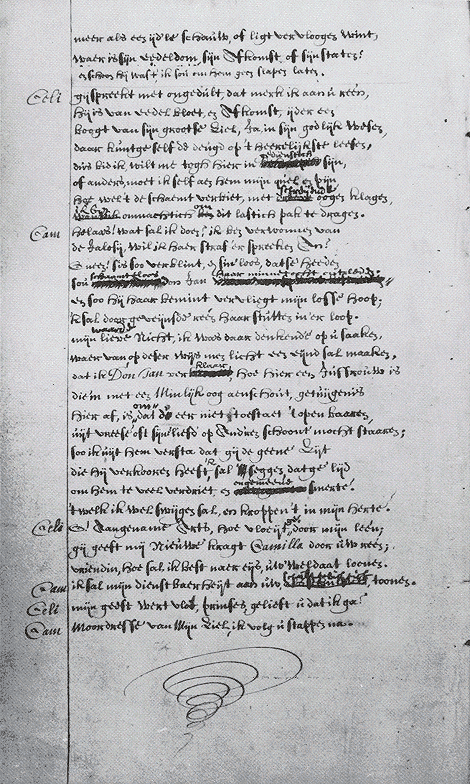 meer als een ijd'le schauw, of ligt vervloogen wint,
waer is sijn eedeldom, sijn Afkomst, of sijn staten?
en schoon hij wast, ik sou om hem geen slapen laten.
Celi gij spreekt met ongedult, dat merk ik aan u reen,
hij is van eedel bloet, en Afkomst, ijder een
boogt van sijn grootse Ziel, Ja, in sijn godlijk wesen,
daar kunt ge self de deugd op 't heerelijkste leesen,
dies bid ik wilt me togh hier in gedienstich sijn,
of anders moet ik self aen hem mijn quel en pijn
hoe wel 't de schaemt verbiet, met schreijende oogen klagen,
ik ben onmachtich om dit lastich pak te dragen.
Cam helaes! wat sal ik doen? ik ben verwonnen van
de Jalosij, wil ik haer straf er spreeken? An?
O neen! sij is soo verblint, en sinloos, datse heeden
sou schaamteloos Don Jan
en soo hij haar bemint vervliegt mijn losse hoop,
k sal door geveijnsde reen haar stutten in er loop.
waarde
mijn lieve Nicht, ik was daar denkende op u saaken,
waer van, op deser wijs men licht een eijnd sal maaken,
dat ik Don Jan ver klaar, hoe hier een Juffrouw is
die in met een Minlijk oog aenschout, getuijgenis
hier af, is om dat de eer niet toestaet 't open baaren,
uijt vreese oft sijn liefd' op Andre schoont mocht staaren;
soo ik uijt hem versta dat gij de geene Zijt
die hij verkooren heeft, sal 'k seggen dat ge lijd
om hem te veel verdriet, en ongemeende smerte!
't welk ik wel swijgen sal, en kroppen 't in mijn herte!
Celi O! Aangename Artz, hoe vloeijt ge door mijn leen;
gij geeft mij Nieuwe kragt Camilla door uw reen;
vriendin, hoe sal ik best naer eijs, uw weldaat loonen.
Cam ik sal mijn dienstbaerheijt aan uw toonen.
Celi mijn geest wert vlot, prinses gelieft u dat ik ga?
Cam Moordresse van Mijn Ziel, ik volg u stappen na.